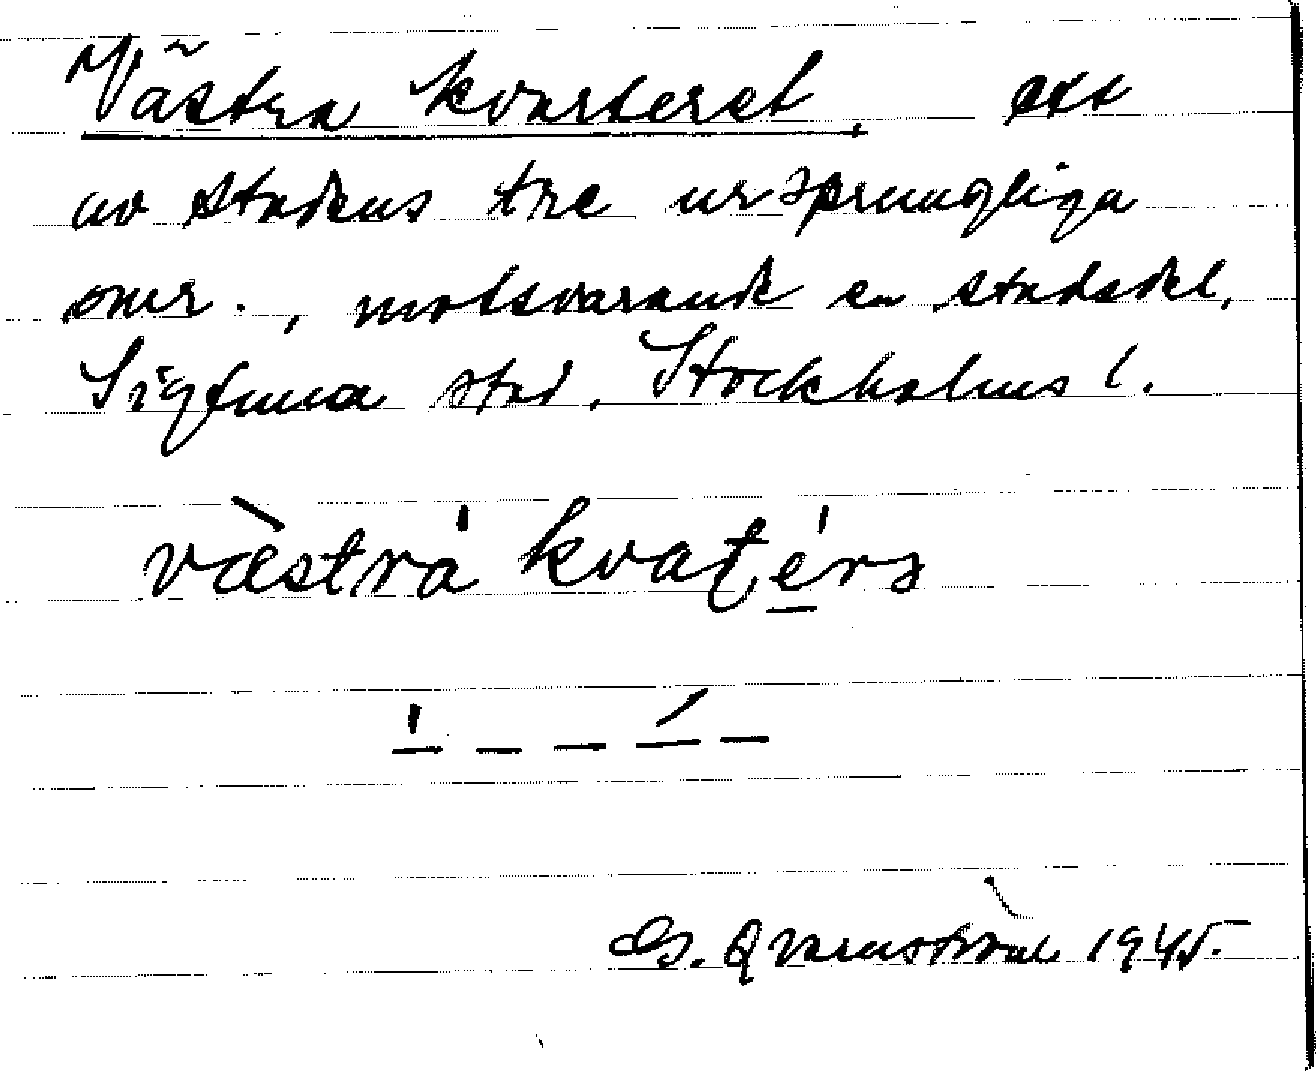 Västra kvarteret, ett
av stadens tre ursprungliga
omr., motsvarande en stadsdel,
Sigtuna stad, Stockholms l.
vàstrá kvaʈérə
G. Qvarnström 1945.